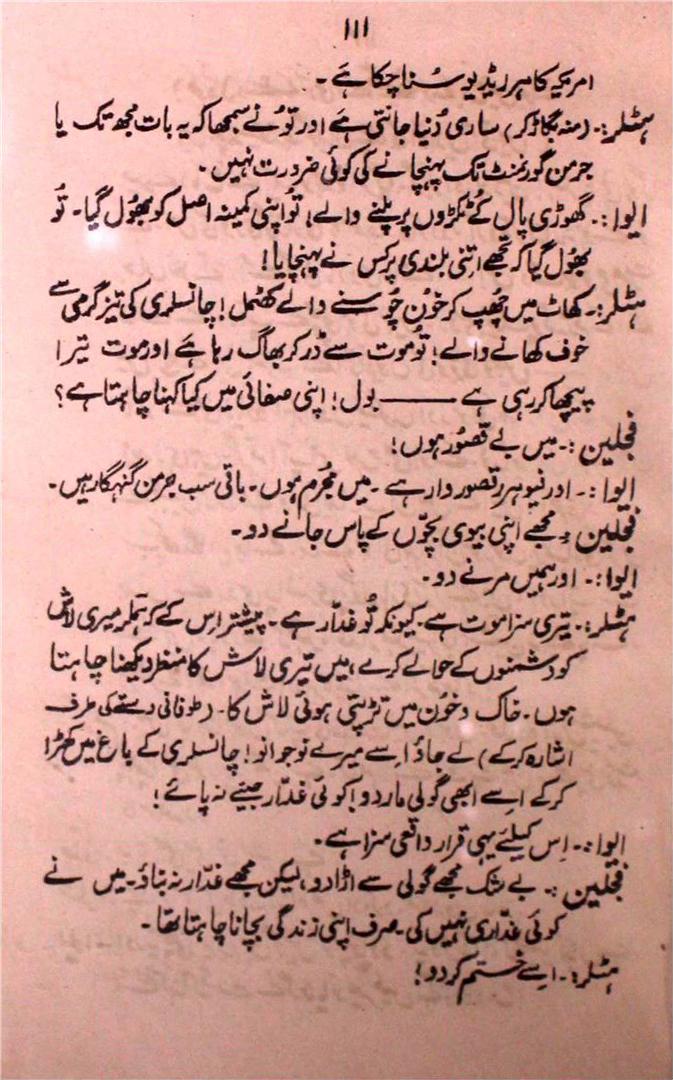 ۱۱۱
امریکہ کا ہر ریڈیو سُنا چکا ہے۔
ہٹلر:۔ (منہ بگاڑ کر) ساری دُنیا جانتی ہے اور تُو نے سمجھا کہ یہ بات مجھ تک یا
جرمن گورنمنٹ تک پہنچانے کی کوئی ضرورت نہیں۔
ایوا:۔ گھوڑی پال کے ٹکڑوں پر پلنے والے! تُو اپنی کمینہ اصل کو بھُول گیا۔ تُو
بھُول گیا کہ تجھے اتنی بلندی پر کس نے پہنچایا!
ہٹلر:۔ کھاٹ میں چھُپ کر خُون چُوسنے والے کھٹمل! چانسلری کی تیز گرمی سے
خوف کھانے والے! تُو موت سے ڈر کر بھاگ رہا ہے اور موت تیرا
پیچھا کر رہی ہے ——— بول! اپنی صفائی میں کیا کہنا چاہتا ہے؟
فجلین:۔ میں بے قصُور ہوں!
ایوا:۔ اور نیو ہرر قصور وار ہے۔ میں مجُرم ہوں۔ باقی سب جرمن گنہگار ہیں۔
فجلین:۔ مجھے اپنی بیوی بچّوں کے پاس جانے دو۔
ایوا:۔ اور ہمیں مرنے دو۔
ہٹلر:۔ تیری سزا موت ہے۔ کیونکہ تُو غدّار ہے۔ پیشتر اِس کے کہ ہملر میری لاش
کو دشمنوں کے حوالے کرے، میں تیری لاش کا منظر دیکھنا چاہتا
ہوں۔ خاک و خُون میں تڑپتی ہوئی لاش کا۔ (طوفانی دستے کی طرف
اشارہ کر کے) لے جاؤ اِسے میرے نوجوانو! چانسلری کے باغ میں کھڑا
کر کے اِسے ابھی گولی مار دو! کوئی غدّار جینے نہ پائے!
ایوا:۔ اِس کیلئے یہی قرار واقعی سزا ہے۔
فجلین:۔ بے شک مجھے گولی سے اڑا دو، لیکن مجھے غدّار نہ بناؤ۔ میں نے
کوئی غدّاری نہیں کی۔ صرف اپنی زندگی بچانا چاہتا تھا۔
ہٹلر:۔ اِسے ختم کر دو!